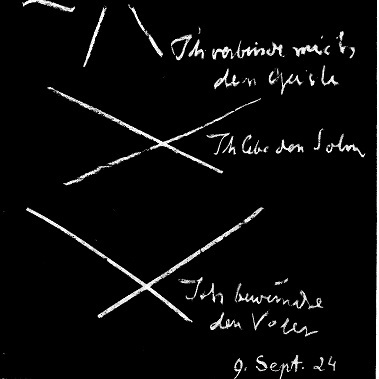 Ich verbinde mich
dem Geiste
Ich liebe den Sohn
Ich bewundre
den Vater
9. Sept. 24